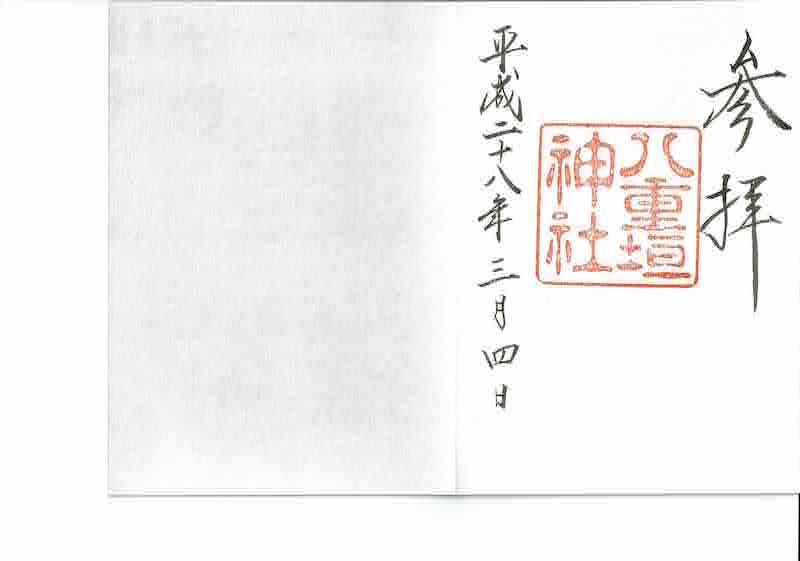 参拝
八重垣
神社
平成二十八年三月四日